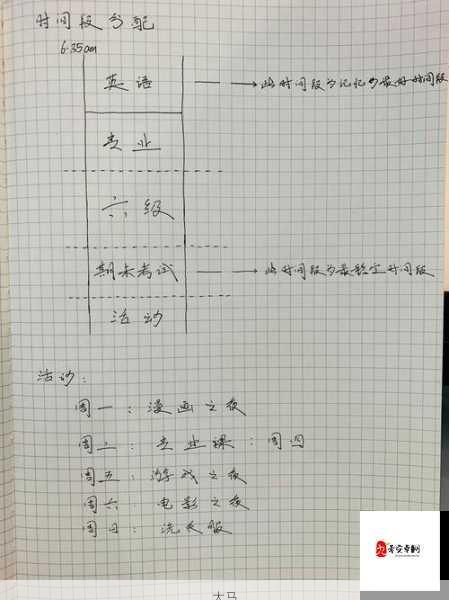 时间段分配
6:35am
英语 → 此时间段为记忆为最好时间段
专业
六级
期末考试 → 此时间段为最稳定时间段
活动
活动：
周一：漫画之夜
周二：专业课：周四
周五：游戏之夜
周六：电影之夜
周日：洗衣服
大马